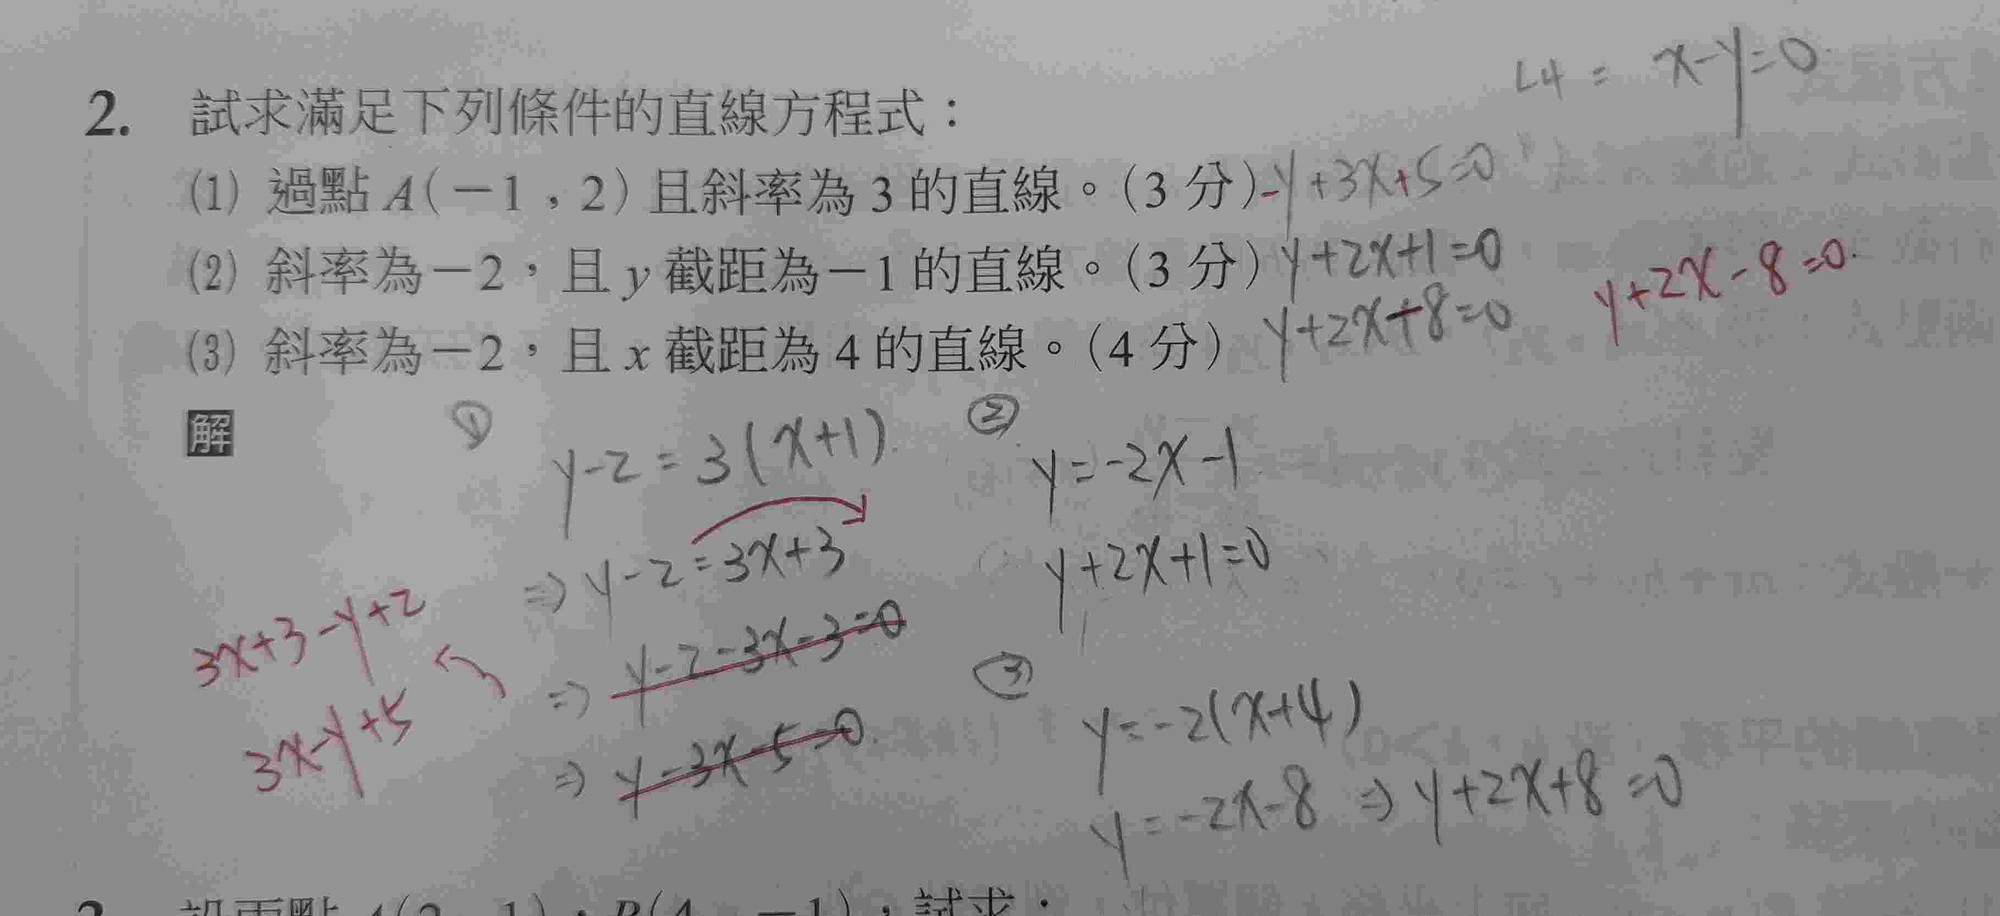 L4 = x-y=0
2. 試求滿足下列條件的直線方程式：
(1) 過點 A(－1，2) 且斜率為 3 的直線。(3 分) -y+3x+5=0
(2) 斜率為－2，且 y 截距為－1 的直線。(3 分) y+2x+1=0
(3) 斜率為－2，且 x 截距為 4 的直線。(4 分) y+2x+8=0 y+2x-8=0.
解
① y-2=3(x+1)
⇒ y-2=3x+3
⇒ y-2-3x-3=0
⇒ y-3x-5=0
3x+3-y+2
3x-y+5
② y=-2x-1
y+2x+1=0
③ y=-2(x+4)
y=-2x-8 ⇒ y+2x+8=0